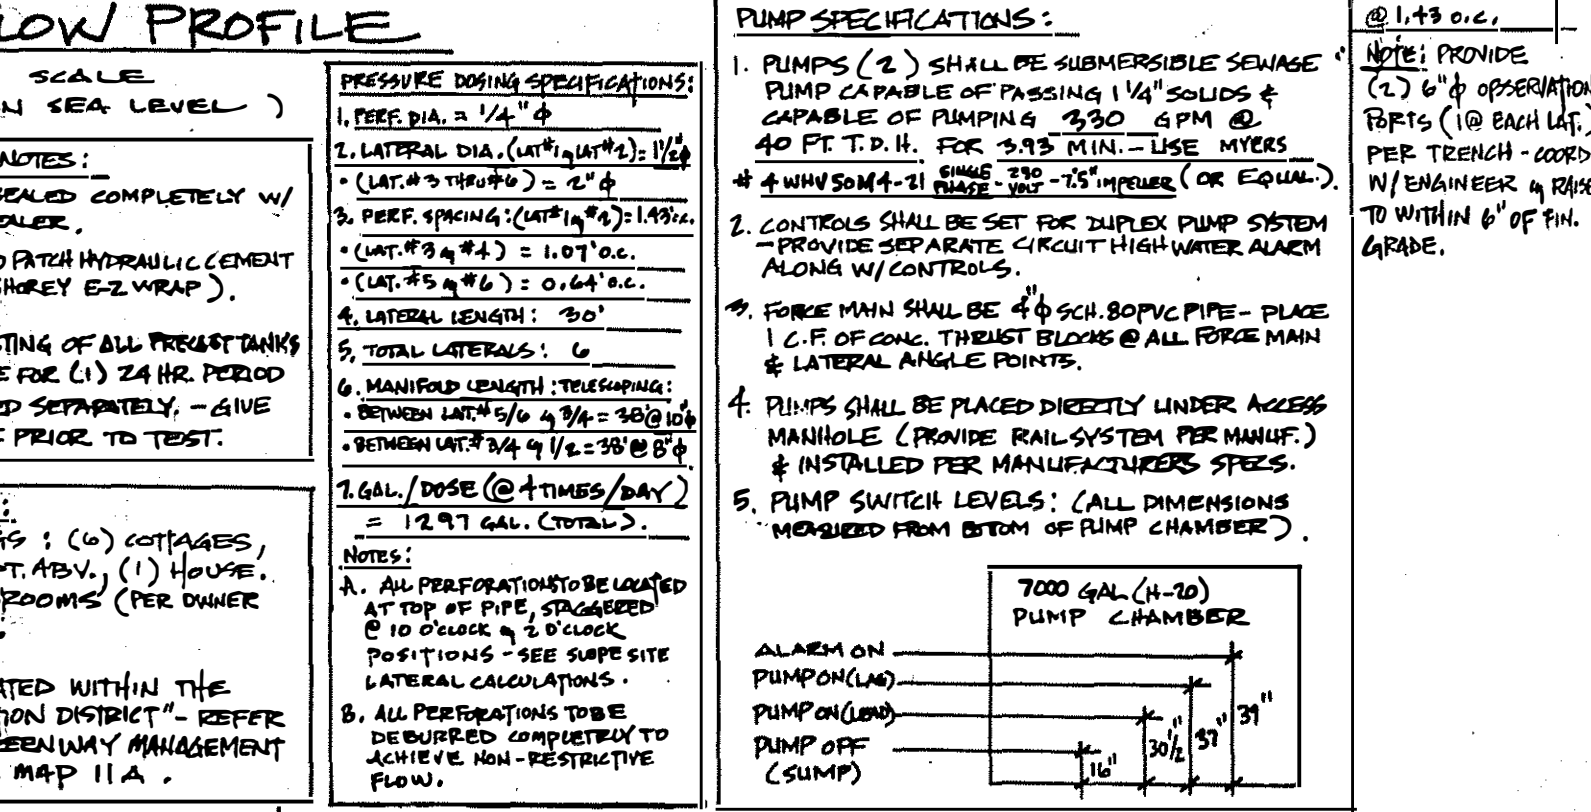 LOW PROFILE
SCALE
N SEA LEVEL )
NOTES:
SEALED COMPLETELY W/
SEALER.
PATCH HYDRAULIC CEMENT
SHOREY E-Z WRAP).
TING OF ALL PRECAST TANKS
E FOR (1) 24 HR. PERIOD
ED SEPARATELY. - GIVE
PRIOR TO TEST.
GS : (6) COTTAGES,
PT. ABV., (1) HOUSE.
ROOMS (PER OWNER
ATED WITHIN THE
ION DISTRICT" - REFER
EENWAY MANAGEMENT
MAP 11A.
PRESSURE DOSING SPECIFICATIONS:
1. PERF. DIA. = 1/4" φ
2. LATERAL DIA. (LAT#1 & LAT#2) = 1 1/2" φ
• (LAT.#3 THRU #6) = 2" φ
3. PERF. SPACING: (LAT#1 & #2) = 1.43' o.c.
• (LAT.#3 & #4) = 1.07' o.c.
• (LAT.#5 & #6) = 0.64' o.c.
4. LATERAL LENGTH: 30'
5. TOTAL LATERALS: 6
6. MANIFOLD LENGTH: TELESCOPING:
• BETWEEN LAT.# 5/6 & 3/4 = 38' @ 10" φ
• BETWEEN LAT.# 3/4 & 1/2 = 38' @ 8" φ
7. GAL./DOSE (@ 4 TIMES/DAY)
= 1297 GAL. (TOTAL).
NOTES:
A. ALL PERFORATIONS TO BE LOCATED
AT TOP OF PIPE, STAGGERED
@ 10 O'CLOCK & 2 O'CLOCK
POSITIONS - SEE SLOPE SITE
LATERAL CALCULATIONS.
B. ALL PERFORATIONS TO BE
DEBURRED COMPLETELY TO
ACHIEVE NON-RESTRICTIVE
FLOW.
PUMP SPECIFICATIONS:
1. PUMPS (2) SHALL BE SUBMERSIBLE SEWAGE
PUMP CAPABLE OF PASSING 1 1/4" SOLIDS &
CAPABLE OF PUMPING 330 GPM @
40 FT. T.D.H. FOR 3.93 MIN. - USE MYERS
# 4WHV50M4-21 SINGLE PHASE - 230 VOLT - 7.5" IMPELLER (OR EQUAL.).
2. CONTROLS SHALL BE SET FOR DUPLEX PUMP SYSTEM
- PROVIDE SEPARATE CIRCUIT HIGH WATER ALARM
ALONG W/ CONTROLS.
3. FORCE MAIN SHALL BE 4" φ SCH. 80 PVC PIPE - PLACE
1 C.F. OF CONC. THRUST BLOCKS @ ALL FORCE MAIN
& LATERAL ANGLE POINTS.
4. PUMPS SHALL BE PLACED DIRECTLY UNDER ACCESS
MANHOLE (PROVIDE RAIL SYSTEM PER MANUF.)
& INSTALLED PER MANUFACTURERS SPECS.
5. PUMP SWITCH LEVELS: (ALL DIMENSIONS
MEASURED FROM BOTTOM OF PUMP CHAMBER).
7000 GAL (H-20)
PUMP CHAMBER
ALARM ON
PUMP ON (LAG)
PUMP ON (LEAD)
PUMP OFF
(SUMP)
16"
30 1/2"
37"
39"
@ 1.43 o.c.
NOTE: PROVIDE
(2) 6" φ OBSERVATION
PORTS (1 @ EACH LAT.)
PER TRENCH - COORD
W/ ENGINEER & RAISE
TO WITHIN 6" OF FIN.
GRADE.